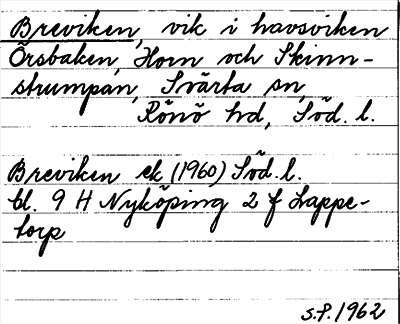 Breviken, vik i havsviken
Örsbaken, Horn och Skinn-
strumpan, Svärta sn,
Rönö hd, Söd. l.
Breviken ek (1960) Söd. l.
bl. 9 H Nyköping 2 f Lappe-
torp
S.P. 1962